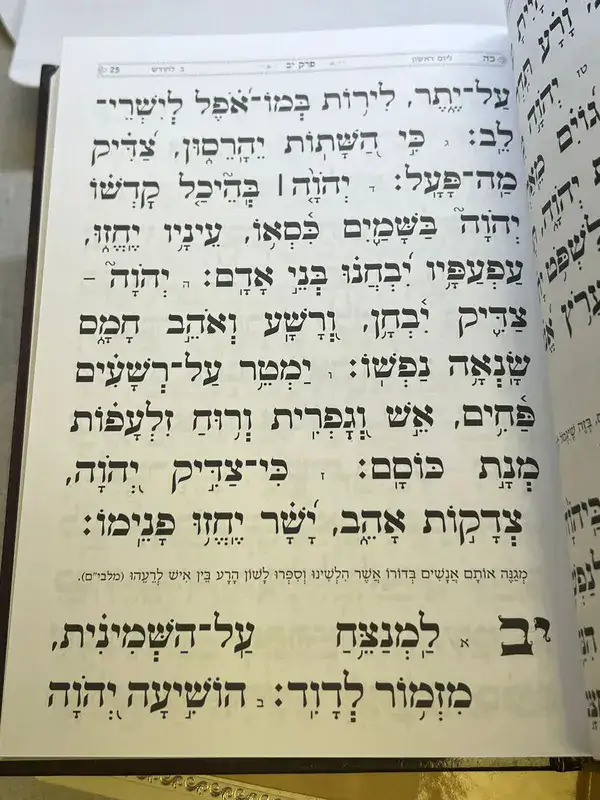 כה ליום ראשון פרק יב ב לחודש 25
עַל־יֶ֑תֶר, לִיר֥וֹת בְּמוֹ־אֹ֝֗פֶל לְיִשְׁרֵי־
לֵֽב: ג כִּ֣י הַ֭שָּׁתוֹת יֵהָרֵס֑וּן, צַ֝דִּ֗יק
מַה־פָּעָֽל: ד יְהֹוָ֤ה | בְּֽהֵ֘יכַ֤ל קׇדְשׁ֗וֹ
יְהֹוָה֮ בַּשָּׁמַ֢יִם כִּ֫סְא֥וֹ, עֵינָ֥יו יֶחֱז֑וּ,
עַפְעַפָּ֥יו יִ֝בְחֲנ֗וּ בְּנֵ֣י אָדָֽם: ה יְהֹוָה֮ –
צַדִּ֢יק יִ֫בְחָ֥ן, וְ֭רָשָׁע וְאֹהֵ֣ב חָמָ֑ס
שָֽׂנְאָ֥ה נַפְשֽׁוֹ: ו יַמְטֵ֥ר עַל־רְשָׁעִ֗ים
פַּ֫חִ֥ים, אֵ֣שׁ וְ֭גׇפְרִית וְר֥וּחַ זִלְעָפ֗וֹת
מְנָ֣ת כּוֹסָֽם: ז כִּֽי־צַדִּ֣יק יְ֭הֹוָה,
צְדָק֣וֹת אָהֵ֑ב, יָ֝שָׁ֗ר יֶחֱז֥וּ פָנֵֽימוֹ:
מְגַנֶּה אוֹתָם אֲנָשִׁים בְּדוֹרוֹ אֲשֶׁר הִלְשִׁינוּ וְסִפְּרוּ לָשׁוֹן הָרָע בֵּין אִישׁ לְרֵעֵהוּ (מלבי״ם).
יב א לַמְנַצֵּ֥חַ עַֽל־הַשְּׁמִינִ֗ית,
מִזְמ֥וֹר לְדָוִֽד: ב הוֹשִׁ֣יעָה יְ֭הֹוָה